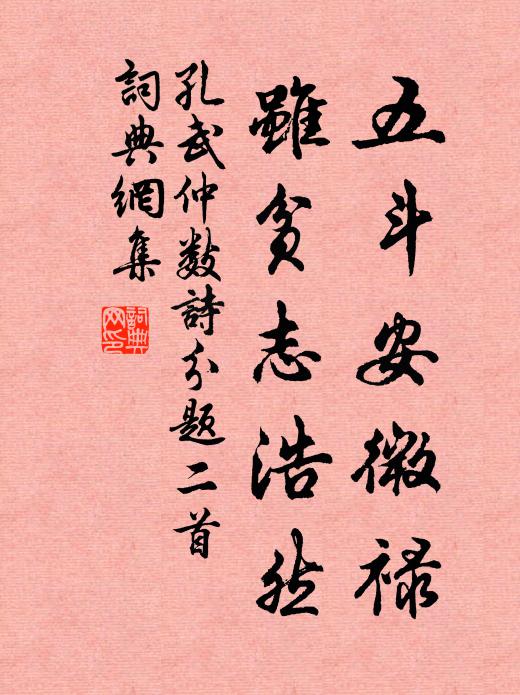 五斗安微禄
雖貧志浩然
孔武仲數詩分題二首
詞典網集
詞典網印